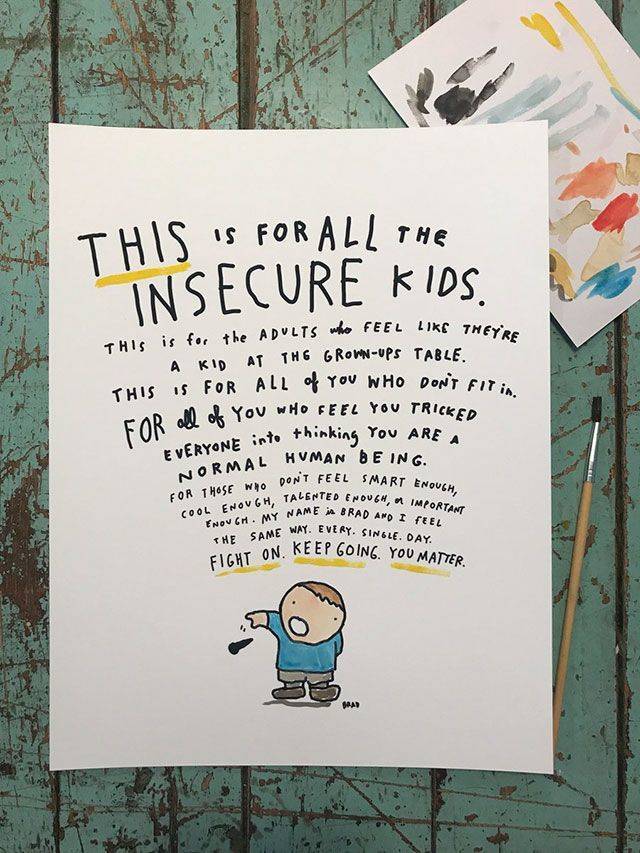 THIS IS FOR ALL THE
INSECURE KIDS.
THIS is for the ADULTS who FEEL LIKE THEY'RE
A KID AT THE GROWN-UPS TABLE.
THIS IS FOR ALL of YOU WHO DON'T FIT in.
FOR all of YOU WHO FEEL YOU TRICKED
EVERYONE into thinking YOU ARE A
NORMAL HUMAN BEING.
FOR THOSE WHO DON'T FEEL SMART ENOUGH,
COOL ENOUGH, TALENTED ENOUGH, or IMPORTANT
ENOUGH. MY NAME is BRAD AND I FEEL
THE SAME WAY. EVERY. SINGLE. DAY.
FIGHT ON. KEEP GOING. YOU MATTER.
BRAD